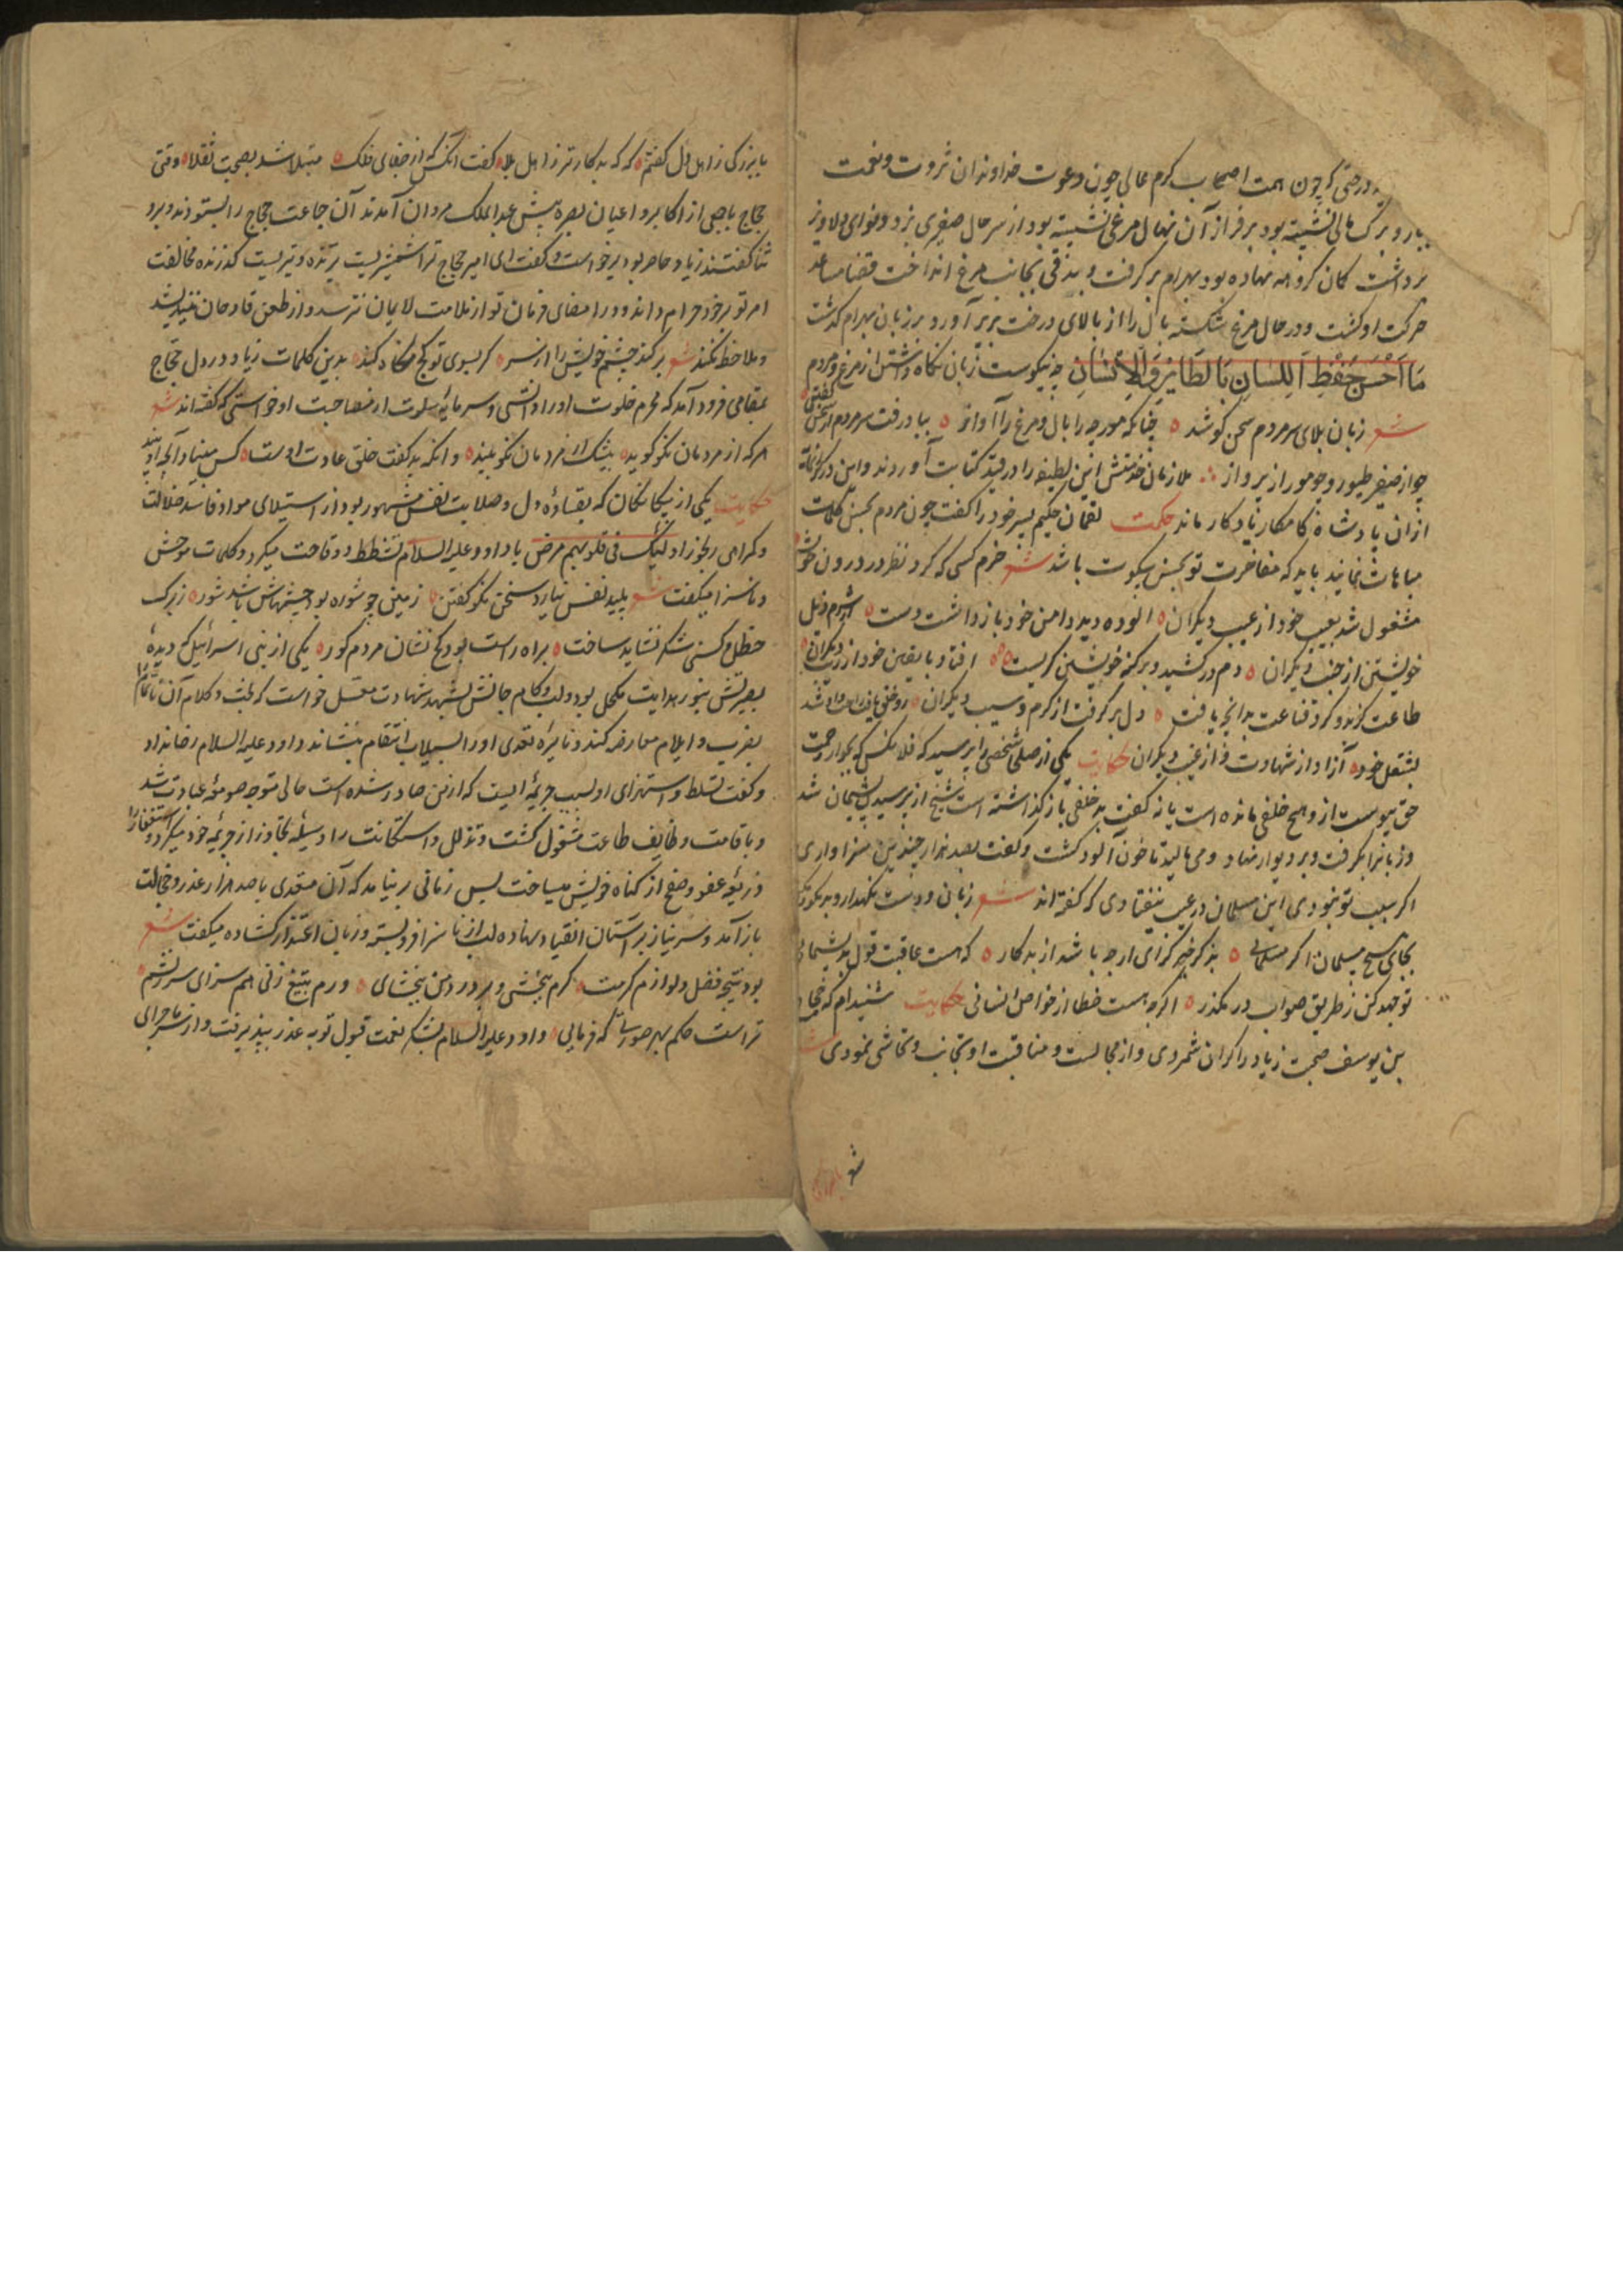 درختی که چون همت اصحاب کرم عالی چون دعوت خداوندان ثروت و نعمت
ببار و برگ حالی نشسته بود بر فراز آن نهال مرغی نشسته بود از سر حال صفیری بزد و نوای دلاویز
برداشت کمان کروهه نهاده بود بهرام برگرفت و بندقی بجانب مرغ انداخت قضا مساعد
حرکت او گشت و در حال مرغ شکسته بال را از بالای درخت بزیر آورد و بر زبان بهرام گذشت
مَا اَحْسَن حِفْظ اَلِلسَانِ بِالطَایِرِ وَالاِنْسَانِ چه نیکوست زبان نگاه داشتن از مرغ و مردم
شعر زبان بلای سر مردم سخن کوشد ه چنانکه مورچه را بال و مرغ را آواز ه بباد رفت سر مردم از سخن گفتن
چو از صفیر طیور و چو مور از پرواز ملازمان خدمتش این لطیفه را در قید کتابت آوردند و این در یکدانه
ازان پادشاه کامکار یادگار ماند حکمت لقمان حکیم پسر خود را گفت چون مردم بحسن کلمات
مباهات نمایند باید که مفاخرت تو بحسن سکوت باشد شعر خرم کسی که کرد نظر در درون خویش
مشغول شد بعیب خود از عیب دیگران ه آلوده دید دامن خود باز داشت دست ه
خویشتن از دیگران ه دم در کشید و بر کنه خویشتن گریست ه افتاد با یقین خود از دیگران
طاعت گزید و کرد قناعت بدانچه یافت ه دل بر گرفت از کرم و سیب دیگران
بشغل خود ه آزاد از شهادت و از غیب دیگران حکایت یکی از صلحا شخصی را پرسید که فلانکس که بجوار رحمت
حق پیوست ازو هیچ خلفی مانده است یا نه گفت بد خلفی باز گذاشته است شیخ از پرسیدن پشیمان شد
و زبانرا بگرفت و بر دیوار نهاد و می مالید تا خون آلود گشت و گفت بصد هزار چندین سزاواری
اگر سبب تو نبودی این مسلمان در عیب نیفتادی که گفته اند شعر زبان و دست نگهدار و بد مگو
بجای هیچ مسلمان اگر مسلمانی ه بذکر خیر گرای ارچه باشد از بدکار ه که هست عاقبت قول بد پشیمانی
تو جهد کن ز طریق صواب در مگذر ه اگرچه هست خطا از خواص انسانی حکایت شنیدم که حجاج
بن یوسف صحبت زیاد را گران شمردی و از مجالست و مناقبت او تجانب و تحاشی نمودی
شعر
با بزرگی ز اهل دل گفتم ه که که بدکارتر ز اهل بلا ه گفت آنکس که از جفای فلک ه مبتلا شد بصحبت ثقلا ه وقتی
حجاج با جمعی از اکابر و اعیان بصره پیش عبدالملک مروان آمدند آن جماعت حجاج را بستودند و برو
ثنا گفتند زیاد حاضر بود برخواست و گفت ای امیر حجاج ترا شمشیریست برنده و تیریست گذرنده مخالفت
امر تو بر خود حرام داند و در امضای فرمان تو از ملامت لایمان نترسد و از طعن قادحان نیندیشد
و ملاحظه نکند شعر برکند چشم خویش را از سر ه گر بسوی تو کج نگاه کند ه بدین کلمات زیاد در دل حجاج
بمقامی فرود آمد که محرم خلوت او را دانستی و سرمایه سلوت از مصاحبت او خواستی که گفته اند شعر
هر که از مردمان نکو گوید ه بیشک از مردمان نکو بیند ه وانکه بد گفت خلق عادت اوست ه کس مبیناد آنچه او بیند
حکایت یکی از بیگانگان که بقساوه دل و صلابت نفس مشهور بود از استیلای مواد فاسد ضلالت
و گمراهی رنجور اولئک فی قلوبهم مرض با داود علیه السلام تشطط و وقاحت میکرد و کلمات موحش
و ناسزا میگفت شعر پلید نفس نیارد سخن نکو گفتن ه زمین چو شوره بود چشمهاش باشد شور ه ز برگ
حنظل کسی شکر نشاید ساخت ه براه راست بود کج نشان مردم کور ه یکی از بنی اسرائیل که دیده
بصیرتش بنور هدایت مکحل بود و لب و کام جانش بشهد شهادت معسل خواست که
بضرب و ایلام معارضه کند و نایره تعدی او را بسیلاب انتقام بنشاند داود علیه السلام رضا نداد
و گفت تسلط و استهزای او بسبب جریمه ایست که از من صادر شده است حالی متوجه صومعه عبادت شد
و باقامت وظایف طاعت مشغول گشت و تذلل و استکانت را وسیله تجاوز از جریمه خود میکرد و استغفار را
ذریعه عفو و صفح از گناه خویش میساخت پس زمانی بر نیامد که آن متعدی با صد هزار عذر و خجالت
باز آمد و سر نیاز بر آستان انقیاد نهاده لب از ناسزا فرو بسته و زبان اعتذار گشاده میگفت شعر
بود نتیجه فضل و لوازم کرمت ه کرم ببخشی و بر درد من ببخشای ه ورم بتیغ زنی هم سزای سرزنشم ه
تراست حکم بهر صورتی که فرمایی ه داود علیه السلام بشکر نعمت قبول توبه عذر بپذیرفت و از سر ماجرای